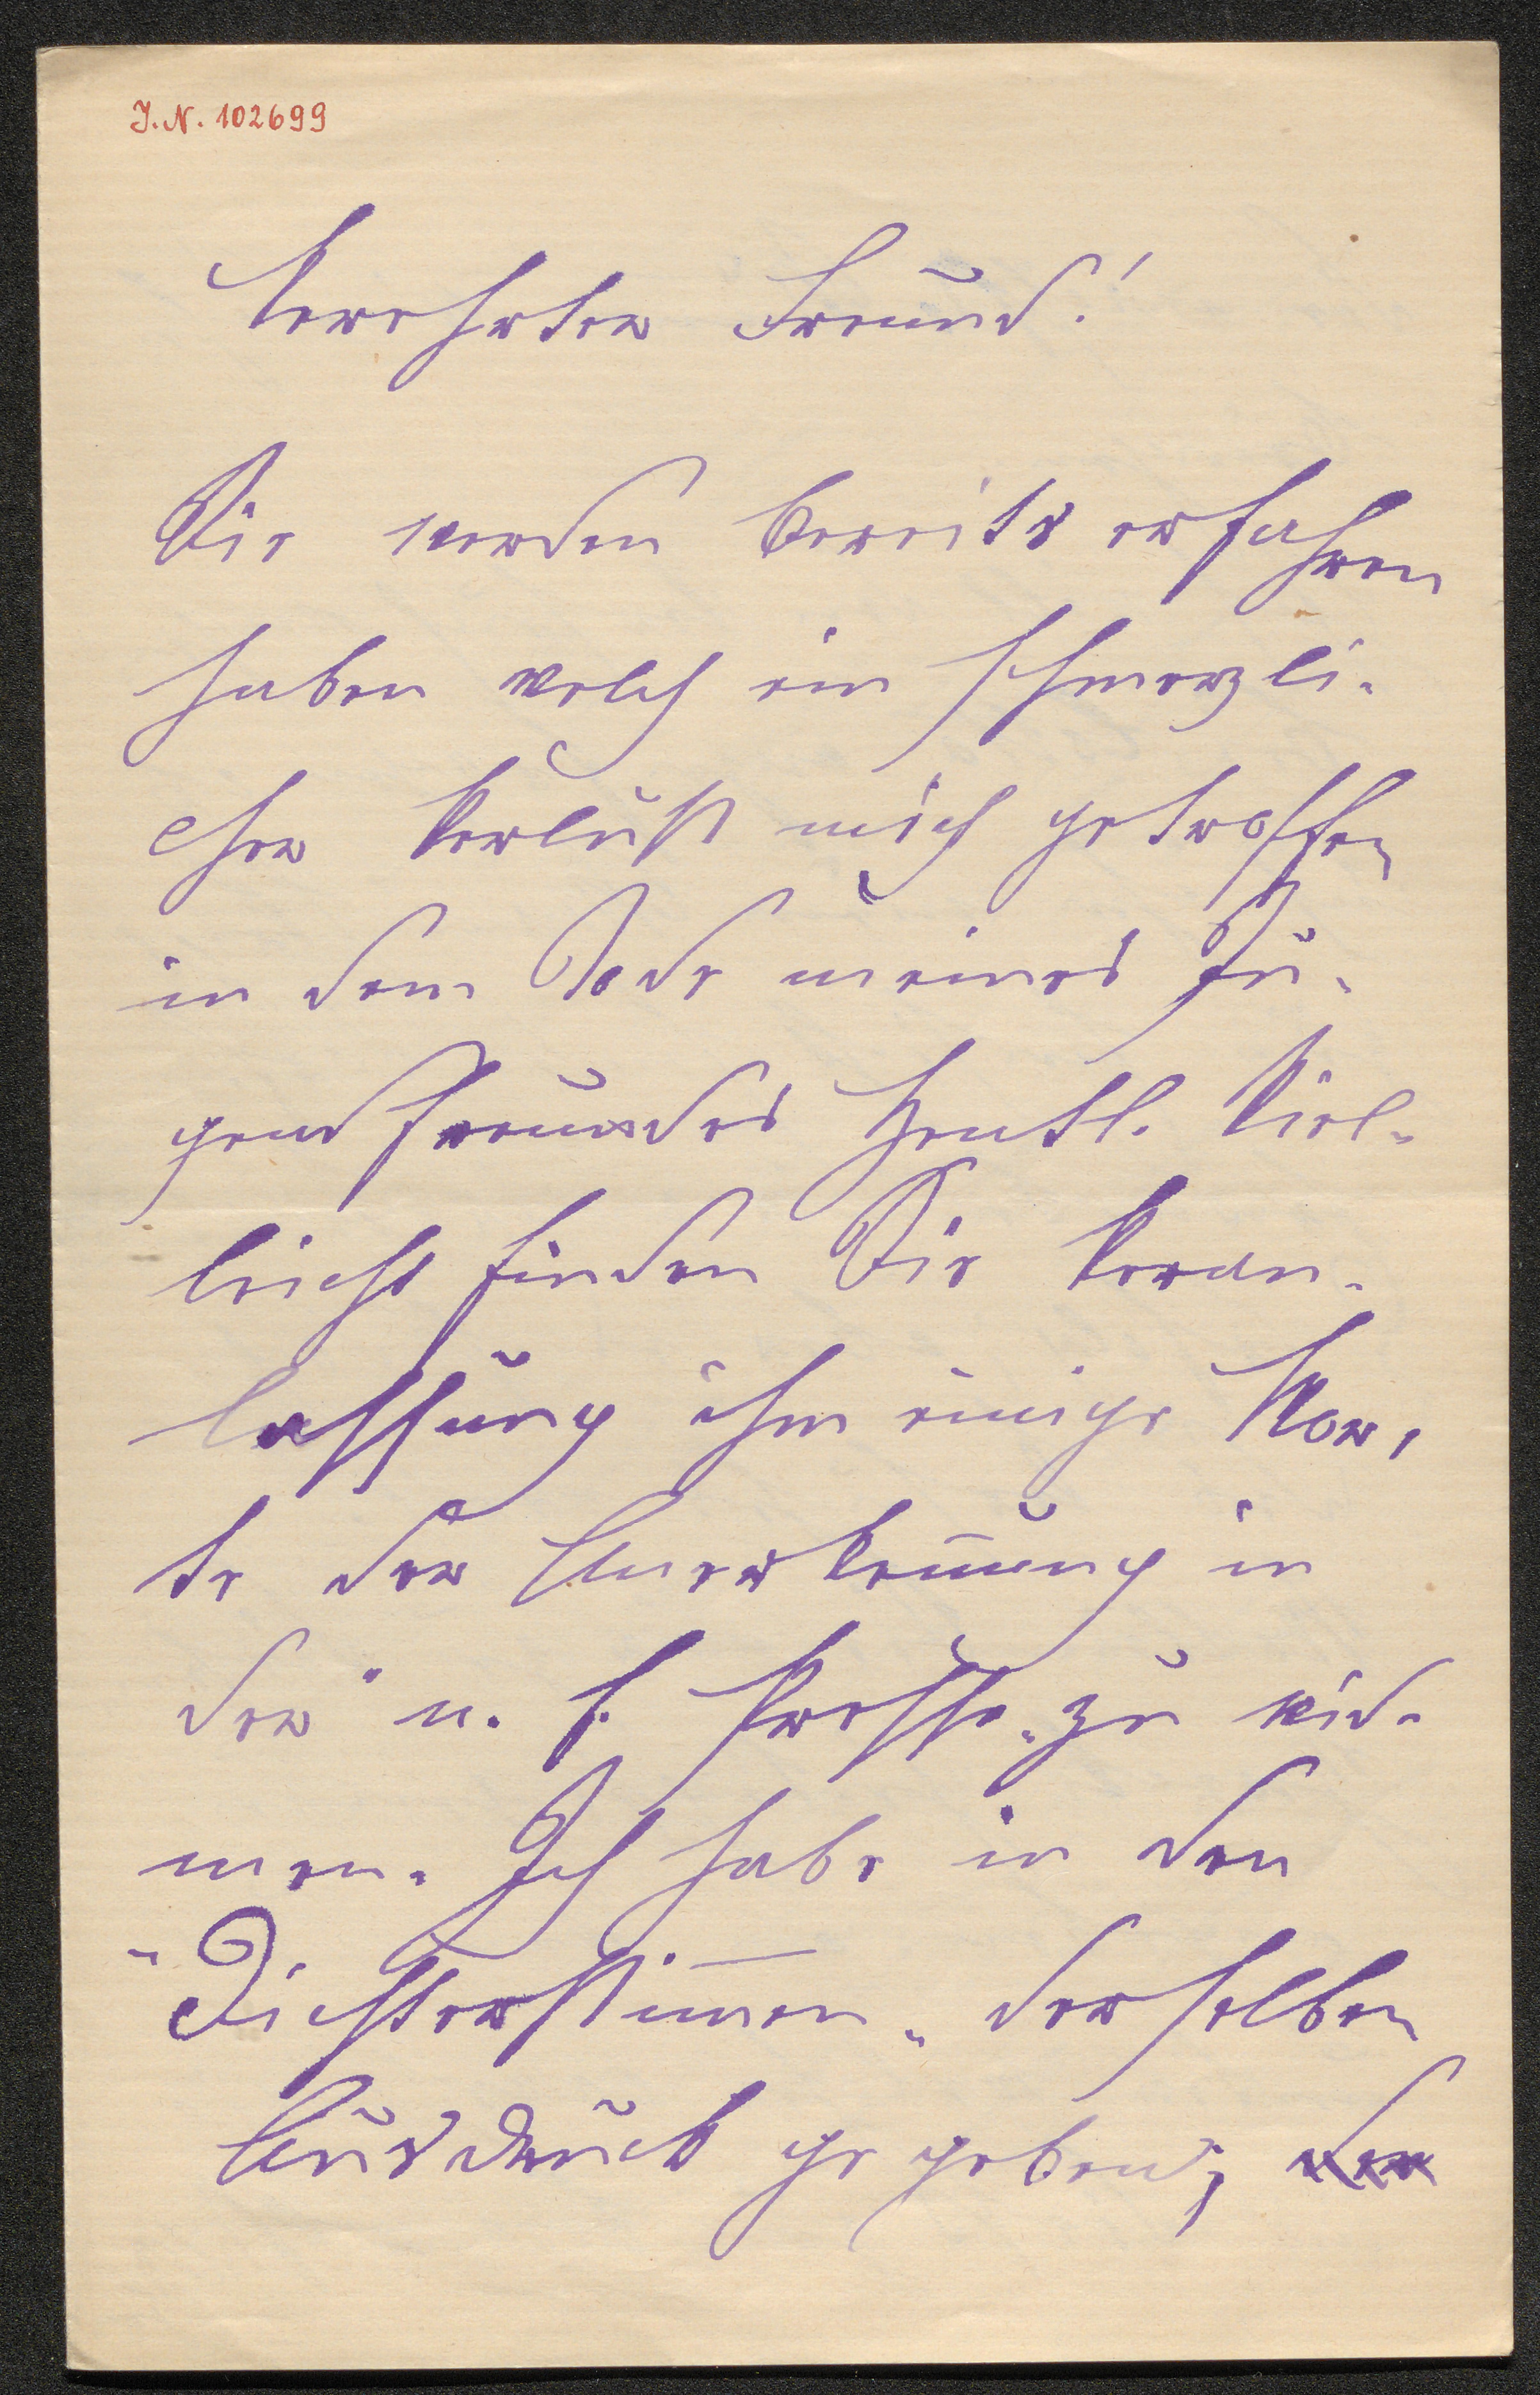 J. N. 102699
Verehrter Freund!
Sie werden bereits erfahren
haben welch ein schmerzli-
cher Verlust mich getroffen
in dem Tode meines Ju-
gendfreundes Hentl. Viel-
leicht finden Sie Veran-
lassung ihm einige Wor-
te der Anerkennung in
der "n. f. Presse" zu wid-
men. Ich habe in den
"Dichterstimmen" derselben
Ausdruck gegeben;